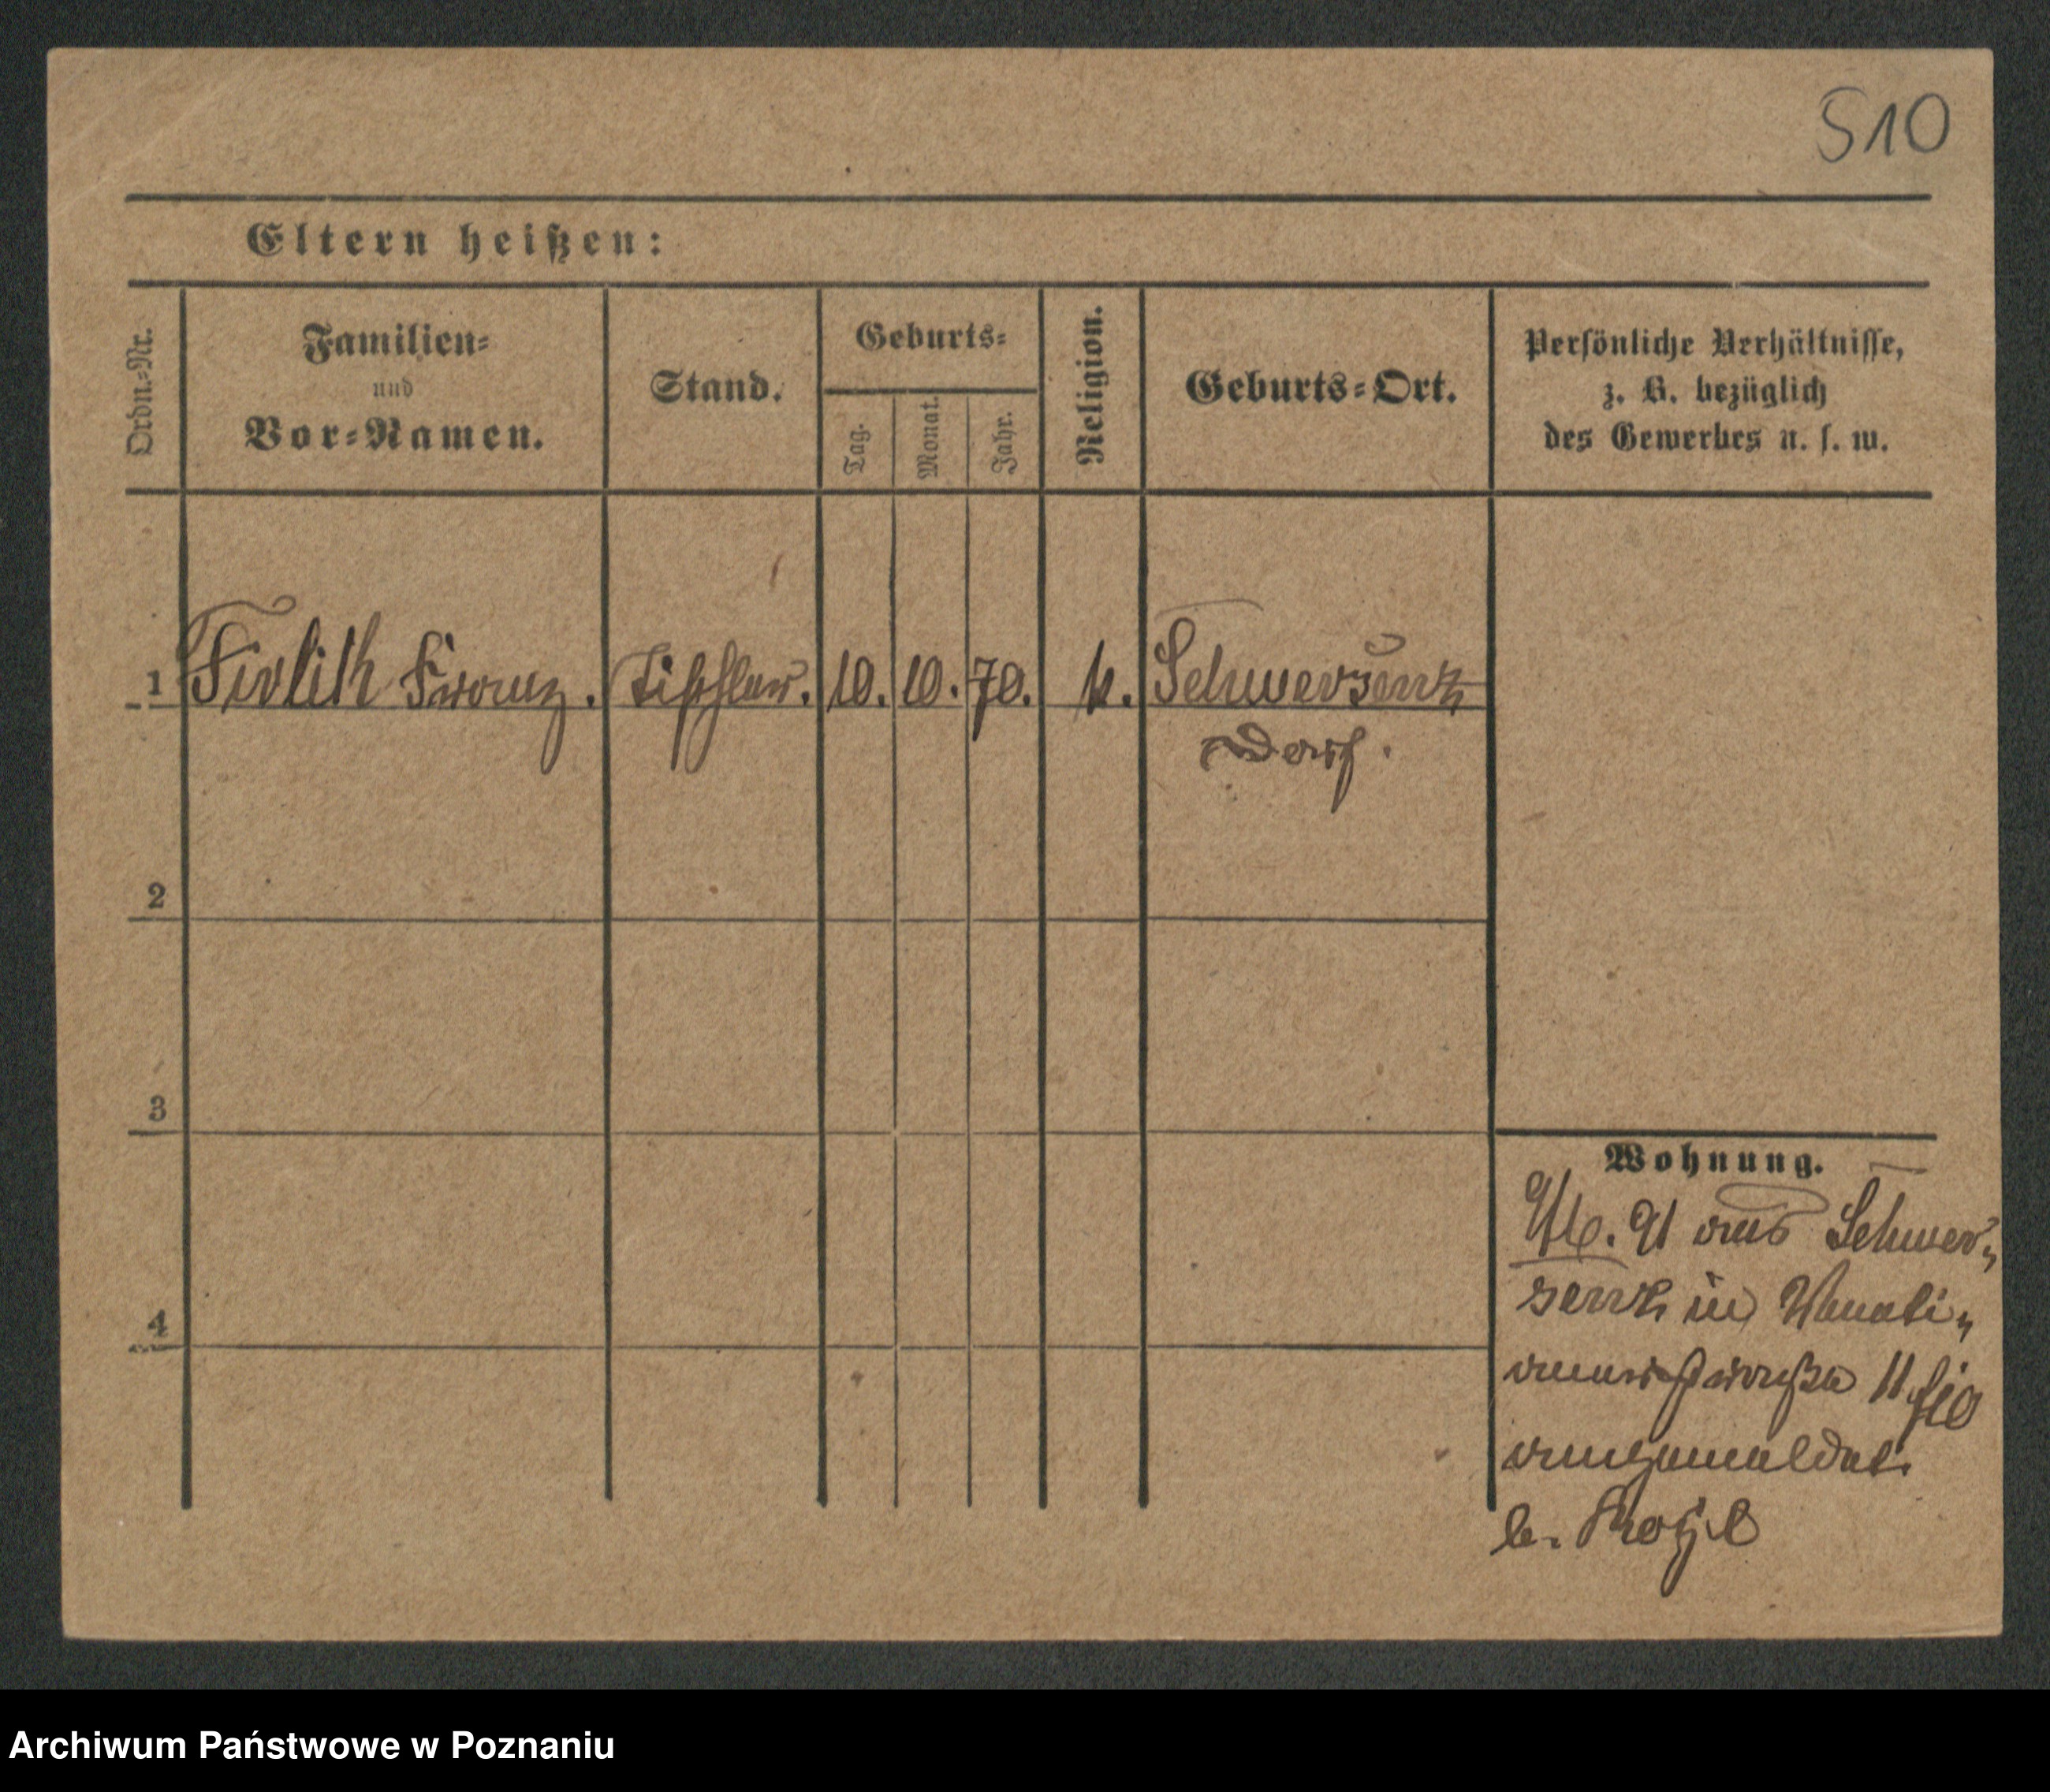 510
Eltern heißen:
Ordn.-Nr.
Familien-
und
Vor-Namen.
Stand.
Geburts-
Tag.
Monat.
Jahr.
Religion.
Geburts-Ort.
Persönliche Verhältnisse,
z. B. bezüglich
des Gewerbes u. s. w.
1 Franz. Tischler. 10. 10. 70. k. Schwersenz
Dorf.
2
3
4
Wohnung.
91 aus Schwer-
senz in
11
angemeldet.
b.
Archiwum Państwowe w Poznaniu